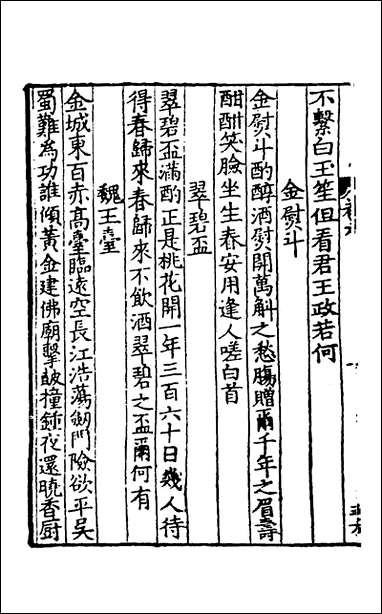 不繫白玉笙但看君王政若何
金熨斗
金熨斗酌醇酒熨開萬斛之愁腸贈爾千年之眉壽
酣酣笑臉坐生春安用逢人嗟白首
翠碧盃
翠碧盃滿酌正是桃花開一年三百六十日幾人待
得春歸來春歸來不飲酒翠碧之盃爾何有
魏王臺
金城東百赤高臺臨遠空長江浩蕩劒門險欲平吳
蜀難為功誰傾黃金建佛廟擊皷撞鍾夜還曉香厨